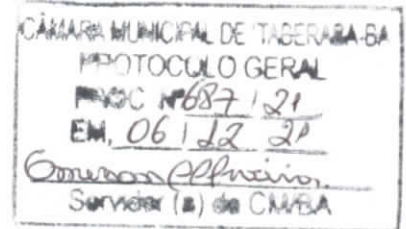 CÂMARA MUNICIPAL DE ITABERABA-BA
PROTOCOLO GERAL
PROC Nº 687 / 21
EM, 06 / 12 21
Servidor (a) da CMIBA